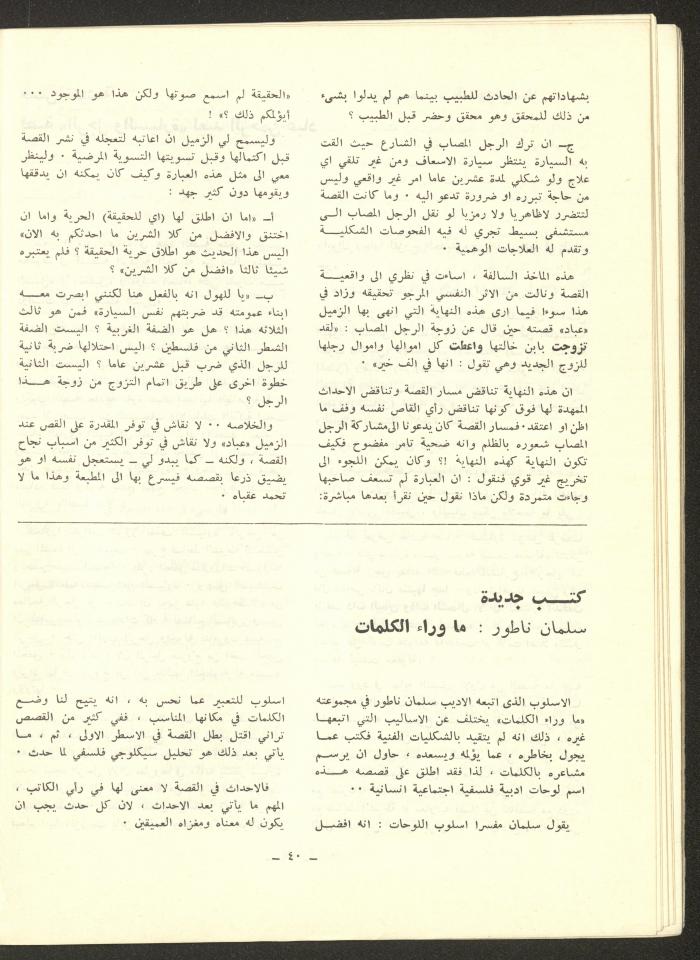 بشهاداتهم عن الحادث للطبيب بينما هم لم يدلوا بشىء
من ذلك للمحقق وهو محقق وحضر قبل الطبيب ؟
جـ ان ترك الرجل المصاب في الشارع حيث القت
به السيارة ينتظر سيارة الاسعاف ومن غير تلقي اي
علاج ولو شكلي لمدة عشرين عاما امر غير واقعي وليس
من حاجة تبرره او ضرورة تدعو اليه ٠ وما كانت القصة
لتتضرر لاظاهريا ولا رمزيا لو نقل الرجل المصاب الـى
مستشفى بسيط تجري له فيه الفحوصات الشكليــة
وتقدم له العلاجات الوهمية ٠
هذه الماخذ السالفة ، اساءت في نظري الى واقعيــة
القصة ونالت من الاثر النفسي المرجو تحقيقه وزاد في
هذا سوءا فيما ارى هذه النهاية التي انهى بها الزميل
«عباد» قصته حين قال عن زوجة الرجل المصاب : «لقد
تزوجت بابن خالتها واعطت كل اموالها واموال رجلها
للزوج الجديد وهي تقول : انها في الف خير» ٠
ان هذه النهاية تناقض مسار القصة وتناقض الاحداث
الممهدة لها فوق كونها تناقض رأي القاص نفسه وفف ما
اظن او اعتقد٠ فمسار القصة كان يدعونا الى مشاركة الرجل
المصاب شعوره بالظلم وانه ضحية تامر مفضوح فكيف
تكون النهاية كهذه النهاية !؟ وكان يمكن اللجوء الى
تخريج غير قوي فنقول : ان العبارة لم تسعف صاحبها
وجاءت متمردة ولكن ماذا نقول حين نقرأ بعدها مباشرة:
«الحقيقة لم اسمع صوتها ولكن هذا هو الموجود ٠٠٠
أيؤلمكم ذلك ؟» !
وليسمح لي الزميل ان اعاتبه لتعجله في نشر القصة
قبل اكتمالها وقبل تسويتها التسوية المرضية ٠ ولينظر
معي الى مثل هذه العبارة وكيف كان يمكنه ان يدققها
ويقومها دون كثير جهد :
أـ «اما ان اطلق لها (اي للحقيقة) الحرية واما ان
اختنق والافضل من كلا الشرين ما احدثكم به الان»
اليس هذا الحديث هو اطلاق حرية الحقيقة ؟ فلم يعتبره
شيئا ثالثا «افضل من كلا الشرين» ؟
بـ «يا للهول انه بالفعل هنا لكنني ابصرت معــه
ابناء عمومته قد ضربتهم نفس السيارة» فمن هو ثالث
الثلاثه هذا ؟ هل هو الضفة الغربية ؟ اليست الضفة
الشطر الثاني من فلسطين ؟ اليس احتلالها ضربة ثانية
للرجل الذي ضرب قبل عشرين عاما ؟ اليست الثانية
خطوة اخرى على طريق اتمام التزوج من زوجة هــذا
الرجل ؟
والخلاصه ٠٠ لا نقاش في توفر المقدرة على القص عند
الزميل «عباد» ولا نقاش في توفر الكثير من اسباب نجاح
القصة ، ولكنه ـ كما يبدو لي ـ يستعجل نفسه او هو
يضيق ذرعا بقصصه فيسرع بها الى المطبعة وهذا ما لا
تحمد عقباه ٠
كتـــب جديدة
سلمان ناطور : ما وراء الكلمات
الاسلوب الذى اتبعه الاديب سلمان ناطور في مجموعته
«ما وراء الكلمات» يختلف عن الاساليب التي اتبعهـا
غيره ، ذلك انه لم يتقيد بالشكليات الفنية فكتب عمـا
يجول بخاطره ، عما يؤلمه ويسعده ، حاول ان يرسـم
مشاعره بالكلمات ، لذا فقد اطلق على قصصه هــذه
اسم لوحات ادبية فلسفية اجتماعية انسانية ٠٠
يقول سلمان مفسرا اسلوب اللوحات : انه افضــل
اسلوب للتعبير عما نحس به ، انه يتيح لنا وضــع
الكلمات في مكانها المناسب ، ففي كثير من القصص
تراني اقتل بطل القصة في الاسطر الاولى ، ثم ، مـا
يأتي بعد ذلك هو تحليل سيكلوجي فلسفي لما حدث ٠
فالاحداث في القصة لا معنى لها في رأي الكاتب ،
المهم ما يأتي بعد الاحداث ، لان كل حدث يجب ان
يكون له معناه ومغزاه العميقين ٠
ـ ٤٠ ـ